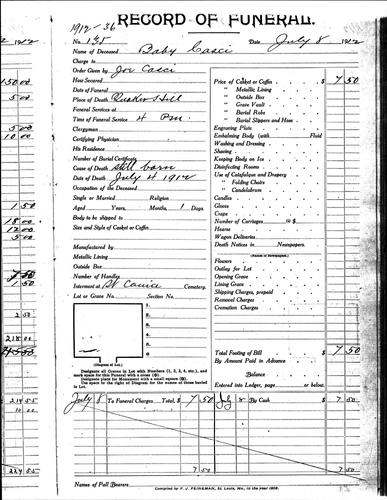 1912-36
RECORD OF FUNERAL.
No. 135 Date July 8 1912
Name of Deceased Baby Casci
Charge to
Order Given by Joe Casci
How Secured
Date of Funeral
Place of Death Quaker Hill
Funeral Services at
Time of Funeral Service 4 P.M.
Clergyman
Certifying Physician
His Residence
Number of Burial Certificate
Cause of Death Still born
Date of Death July 4 1912
Occupation of the Deceased
Single or Married Religion
Aged Years, Months, 1 Days.
Body to be shipped to
Size and Style of Casket or Coffin
Manufactured by
Metallic Lining
Outside Box
Number of Handles
Interment at Cemetery.
Lot or Grave No. Section No.
1.
2.
3.
4.
5.
6
(Diagram of Lot.)
Designate all Graves in Lot with Numbers (1, 2, 3, 4, etc.), and
mark space for this Funeral with a cross (X).
Designate place for Monument with a small square (□).
Use space to the right of Diagram for the names of those buried
in Lot.
Price of Casket or Coffin $ 7 50
" Metallic Lining
" Outside Box
" Grave Vault
" Burial Robe
" Burial Slippers and Hose
Engraving Plate
Embalming Body (with Fluid)
Washing and Dressing
Shaving
Keeping Body on Ice
Disinfecting Rooms
Use of Catafalque and Drapery
" Folding Chairs
" Candelabrum
Candles
Gloves
Crape
Number of Carriages @ $
Hearse
Wagon Deliveries
Death Notices in Newspapers.
(Names of Newspapers)
Flowers
Outlay for Lot
Opening Grave
Lining Grave
Shipping Charges, prepaid
Removal Charges
Cremation Charges
Total Footing of Bill $ 7 50
By Amount Paid in Advance
Balance
Entered into Ledger, page or below.
July 8 To Funeral Charges Total, $ 7 50 July 8 By Cash $ 7 50
7 50 7 50
Names of Pall Bearers
Compiled by F. J. FEINEMAN, St. Louis, Mo., in the year 1908.
1912
150 00
5 00
5 00
10 00
1 50
18 00
12 00
5 00
1 50
2 50
218 00
214 55
10 00
224 55